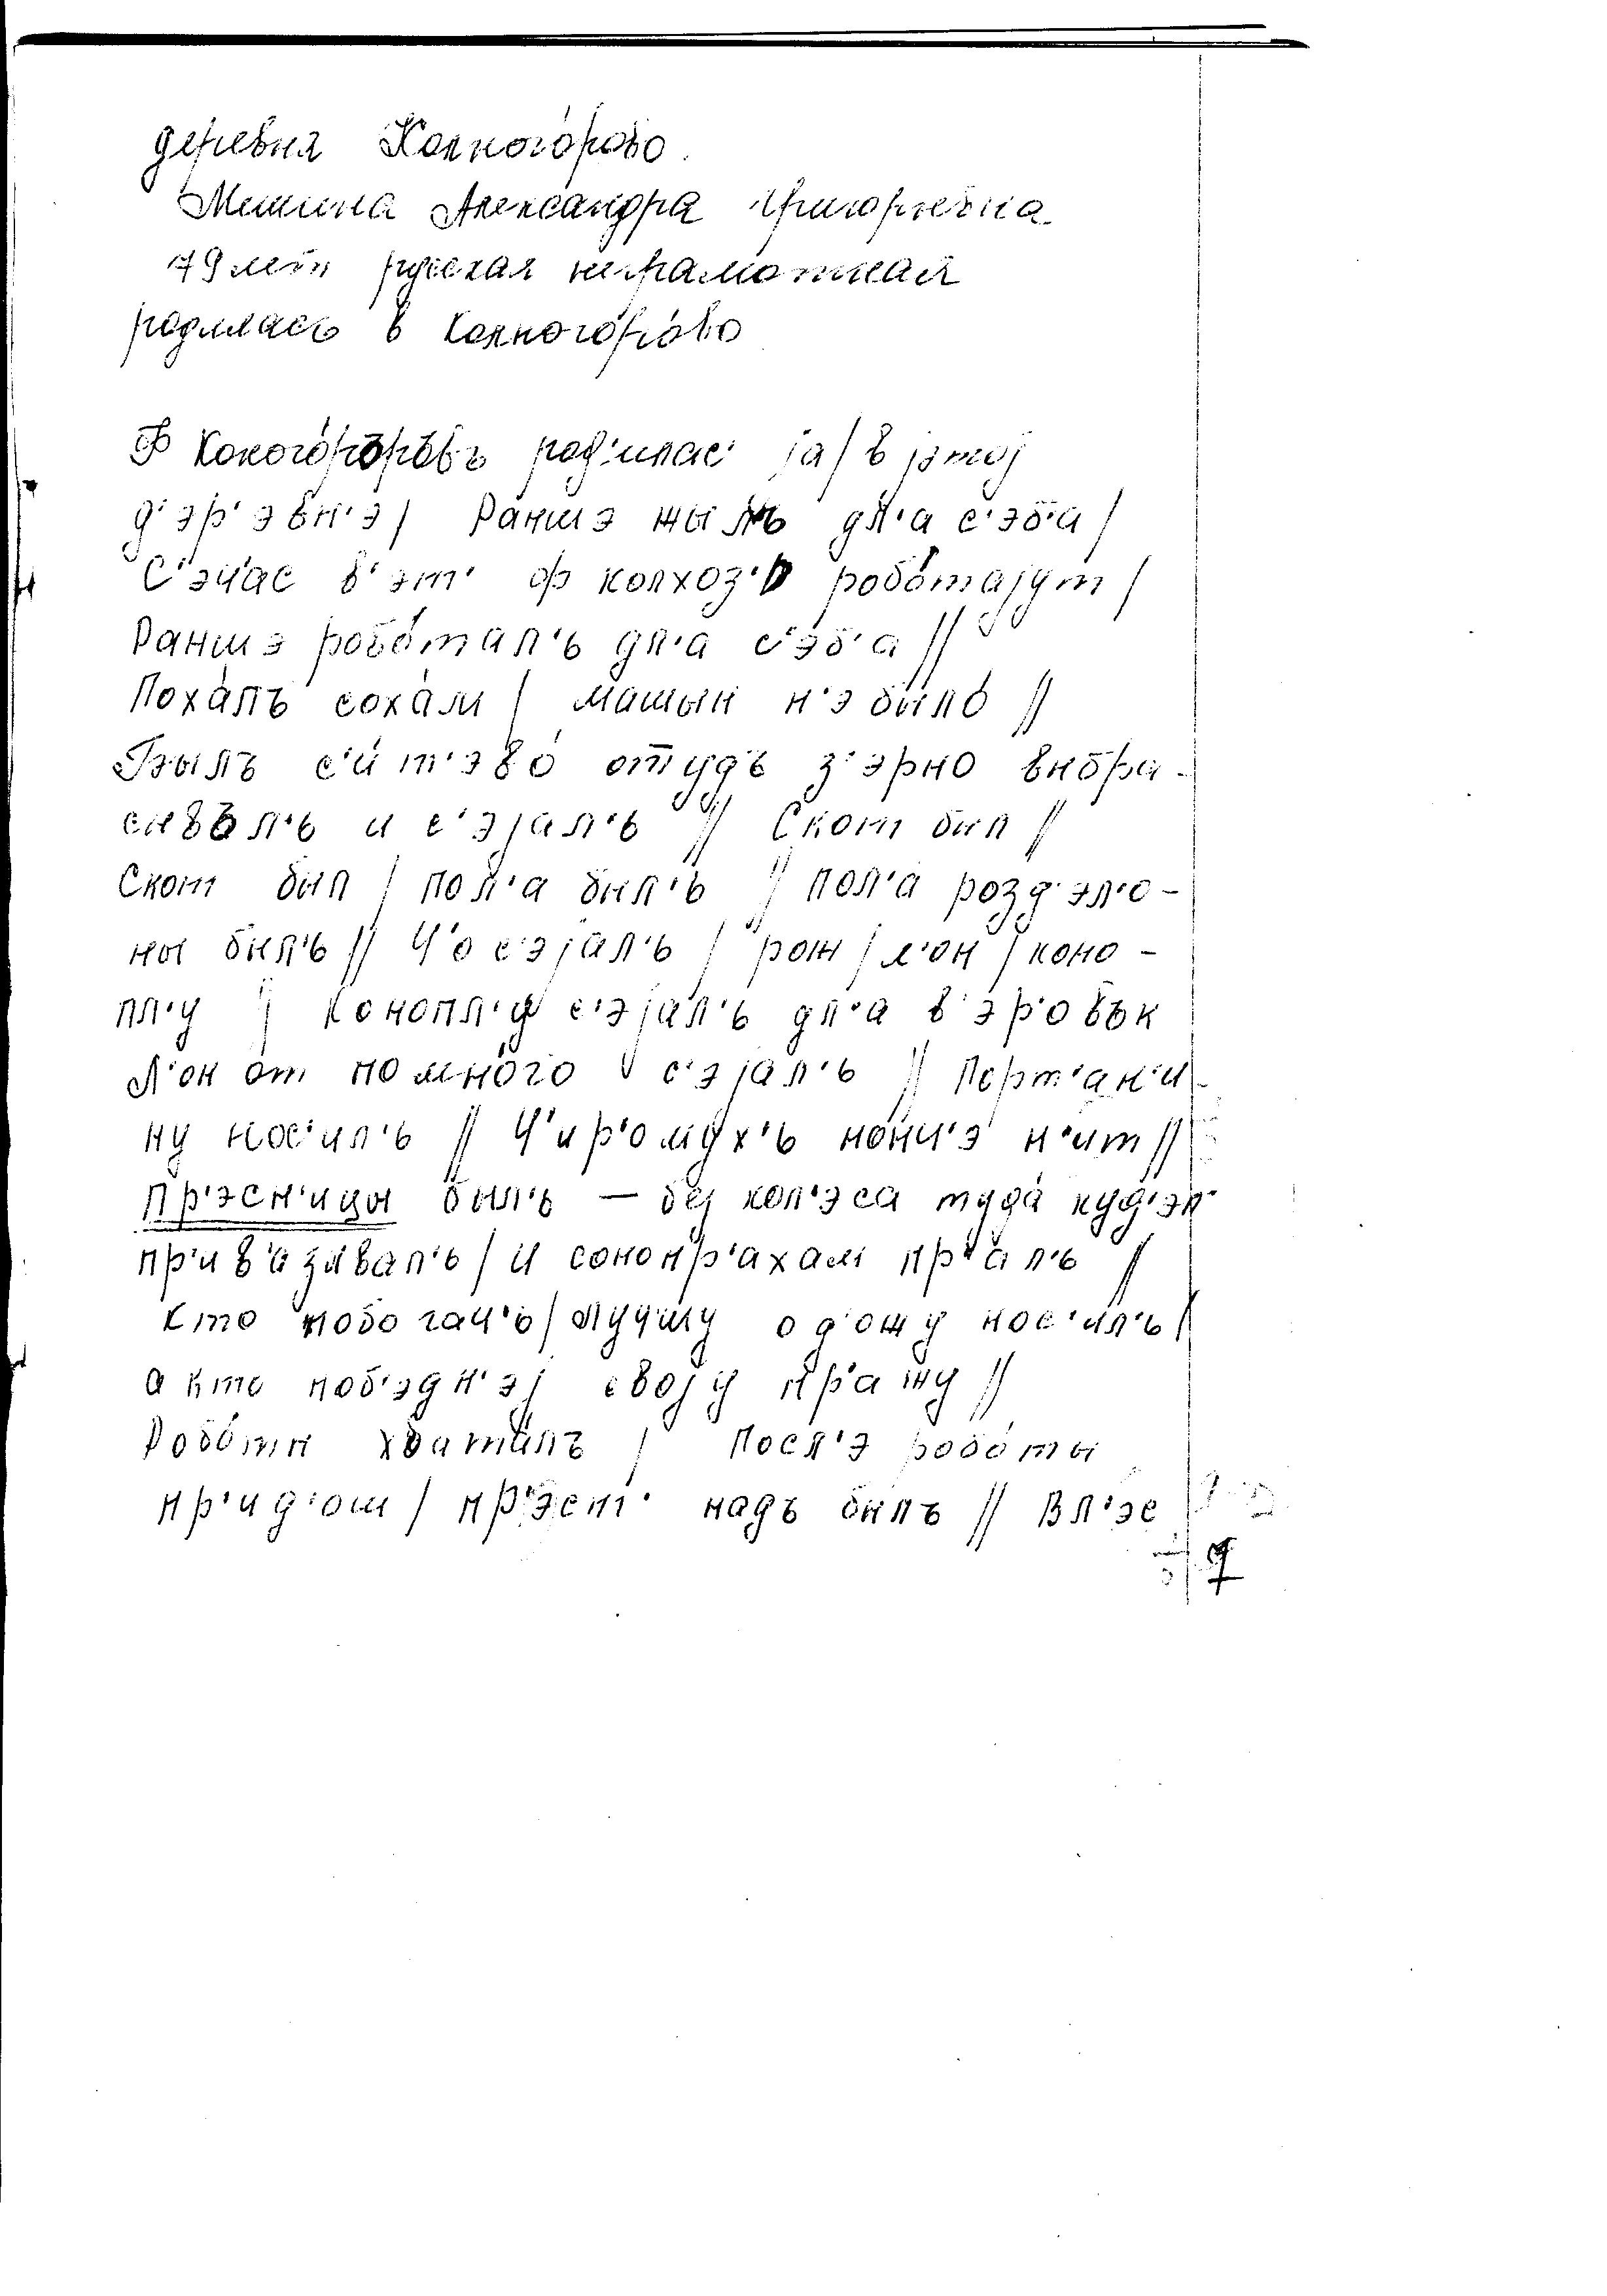 деревня Колногорово.
Мишина Александра Григорьевна
79 лет русская неграмотная
родилась в Колногорово
Ф Коногоровъ род'илас' ја / в јэтој
д'эр'эвн'э / Раншэ жылъ дл'а с'эб'а /
С'эчас в'эт' ф колхоз'ь роботајут /
Раншэ роботал'ь дл'а с'эб'а //
Похалъ сохам / машын н'э было //
Былъ с'ит'эво оттудъ з'эрно выбра-
сывъл'ь и с'эјал'ь // Скот был //
Скот был / пол'а был'ь // пол'а розд'эл'о-
ны был'ь // Ч'о с'эјал'ь / рож / л'он / коно-
пл'у / Конопл'у с'эјал'ь дл'а в'эр'овък
Л'он от помного с'эјал'ь // Порт'ан'и-
ну нос'ил'ь // Ч'ир'омух'ь нонч'э н'ит //
Пр'эсн'ицы был'ь — без кол'эса туда куд'эл'
пр'ив'азывал'ь / и сонопр'ахам пр'ал'ь //
Кто побогач'ь / лучшу од'ожу нос'ил'ь /
а кто поб'эдн'эј својy пр'ажу //
Роботы хваталъ / Посл'э роботы
пр'ид'ош / пр'эст' надъ былъ // Вл'эс